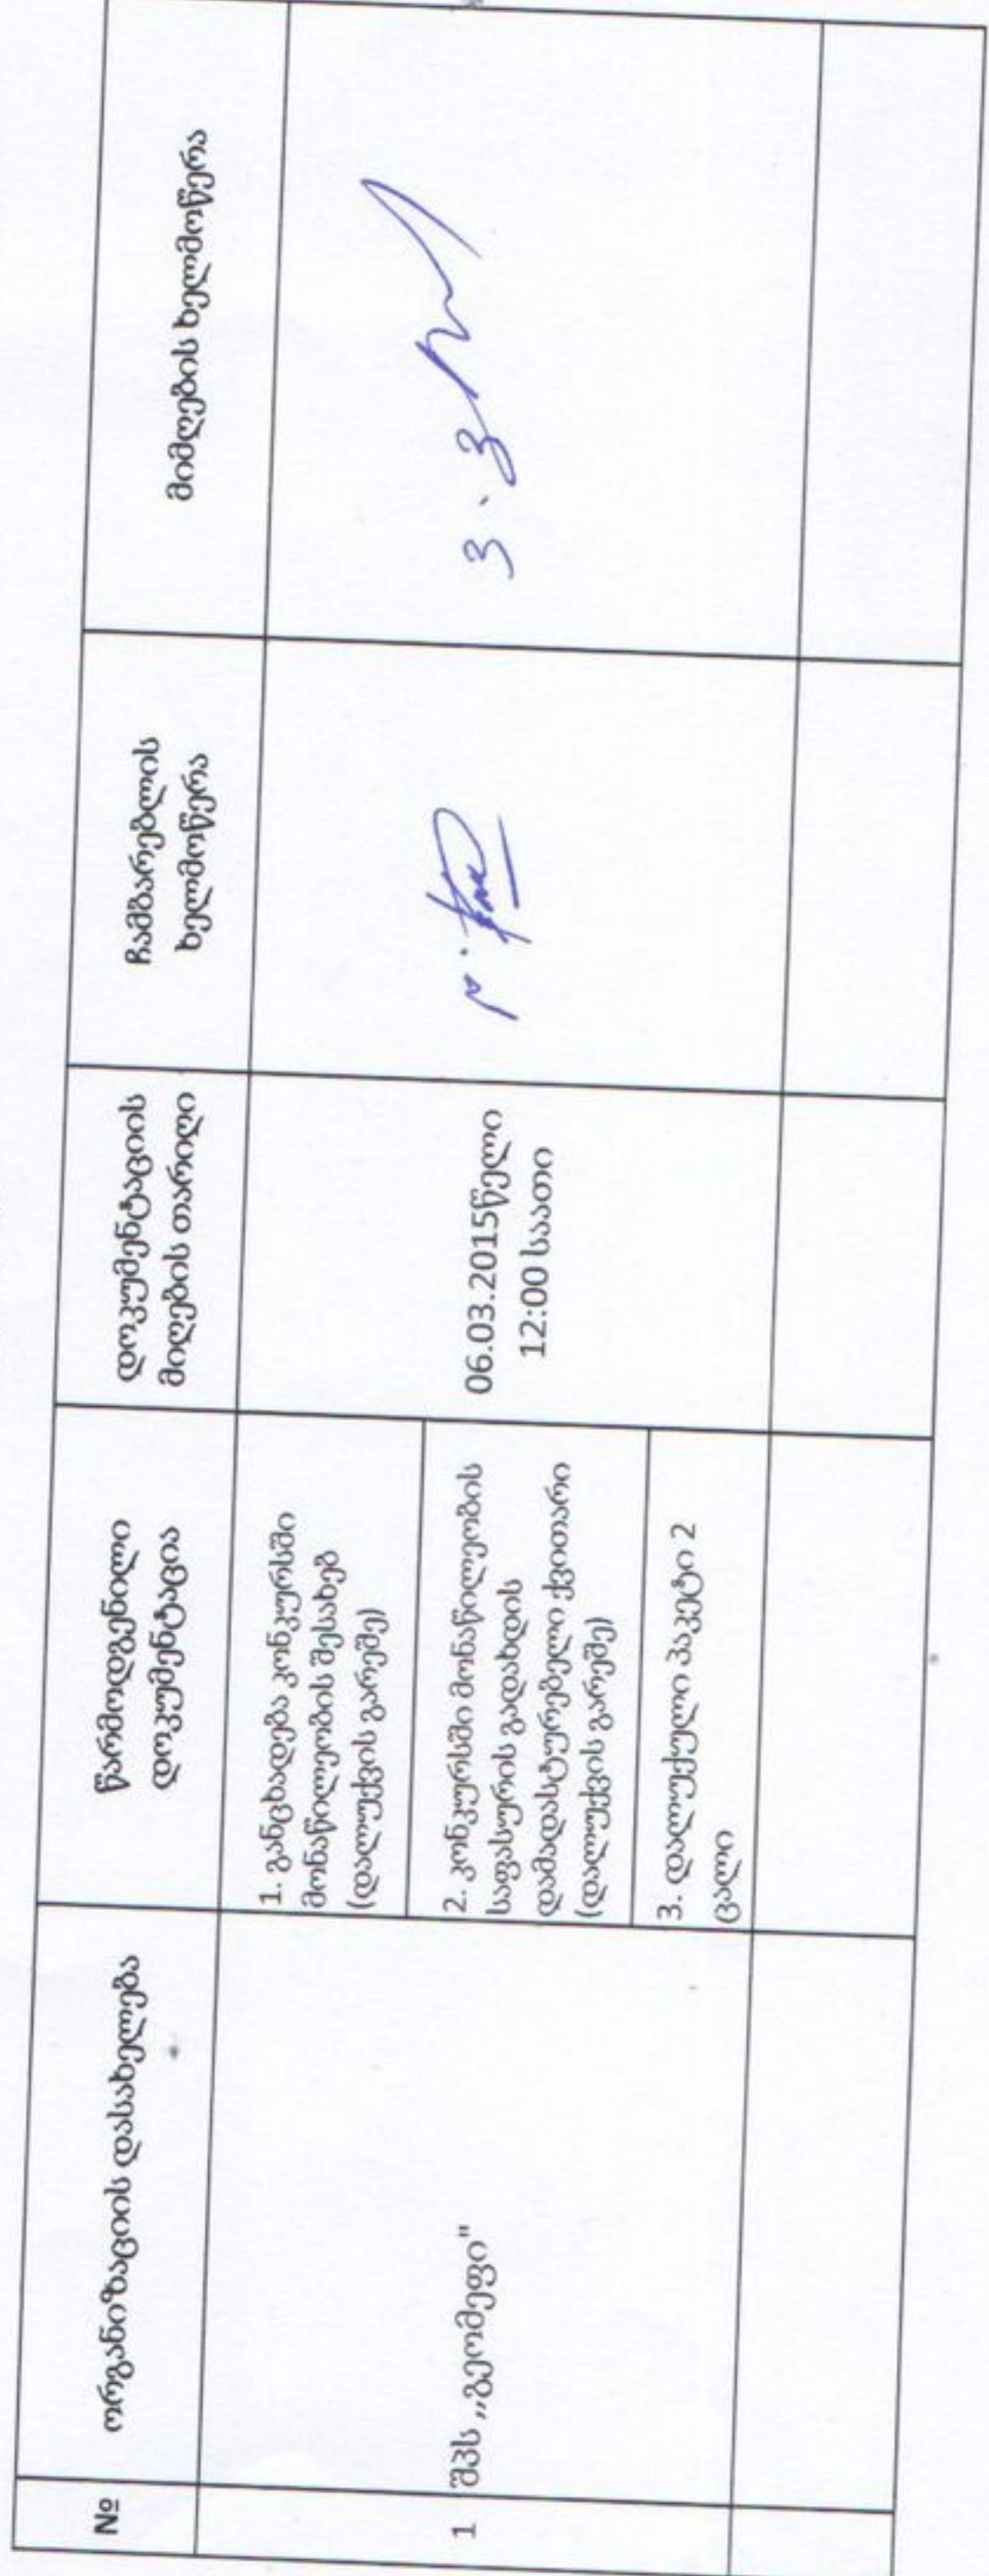 №
ორგანიზაციის დასახელება
წარმოდგენილი
დოკუმენტაცია
დოკუმენტაციის
მიღების თარიღი
ჩამბარებლის
ხელმოწერა
მიმღების ხელმოწერა
1
შპს ,,გეომეფი"
1. განცხადება კონკურსში
მონაწილეობის შესახებ
(დალუქვის გარეშე)
2. კონკურსში მონაწილეობის
საფასურის გადახდის
დამადასტურებელი ქვითარი
(დალუქვის გარეშე)
3. დალუქული პაკეტი 2
ცალი
06.03.2015წელი
12:00 საათი